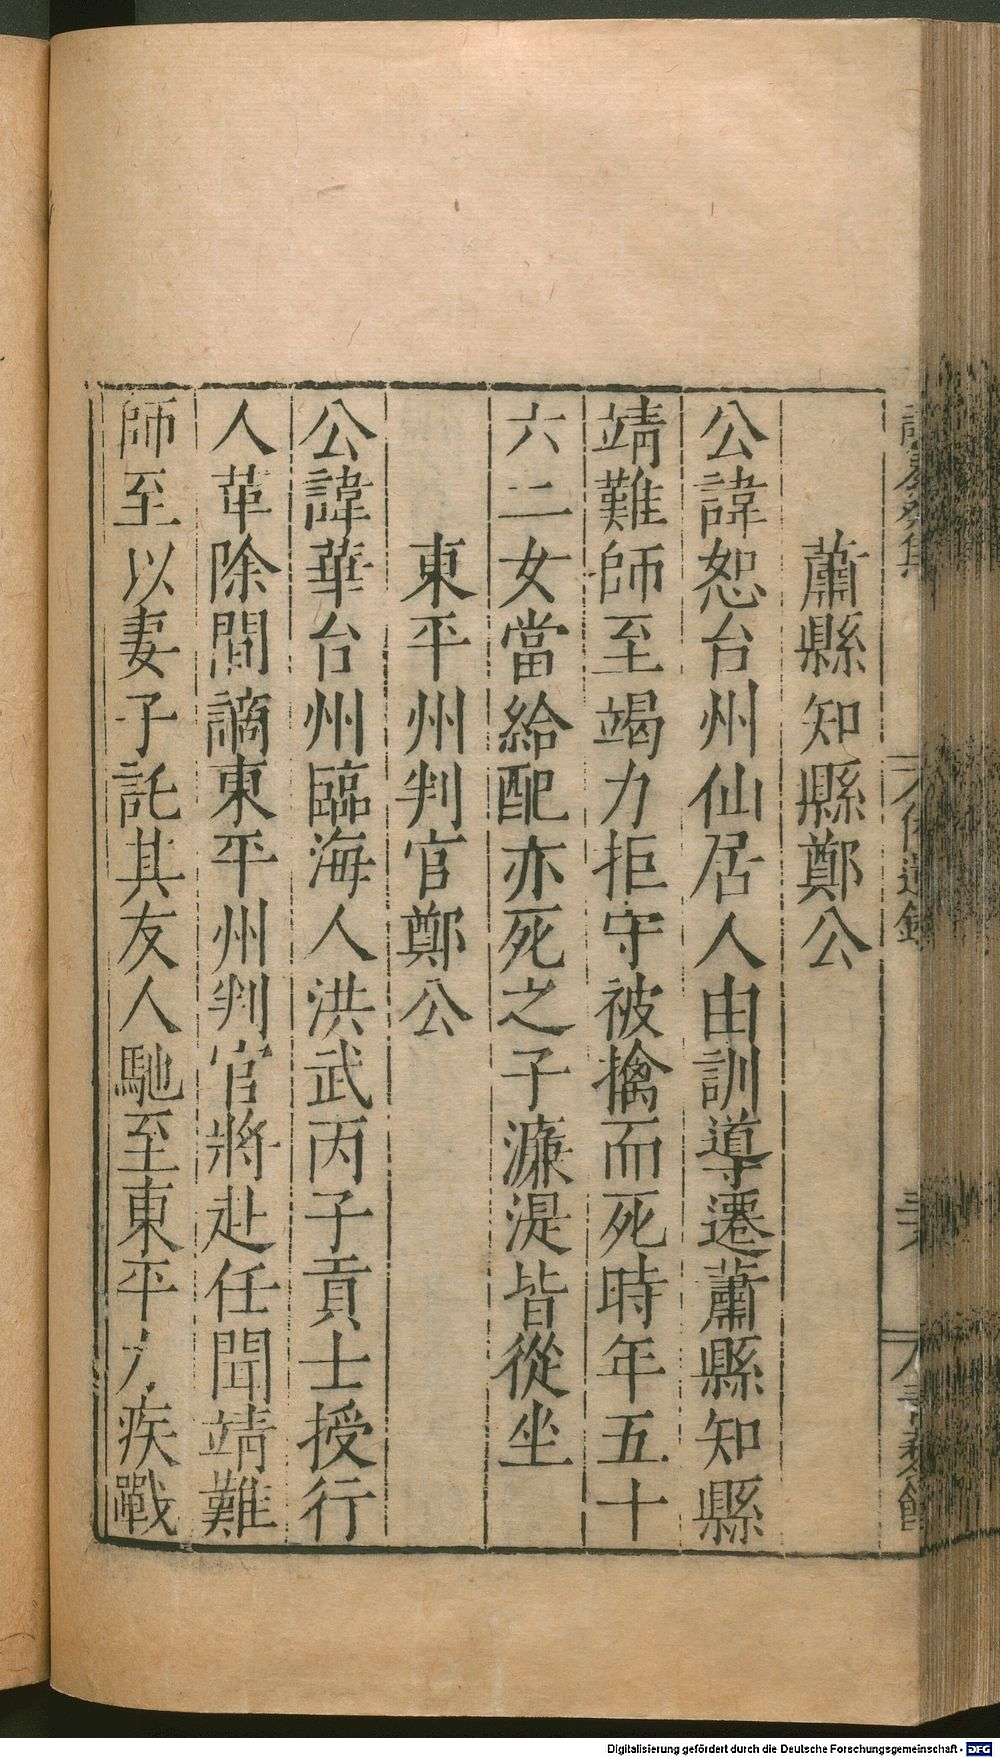 蕭縣知縣鄭公
公諱恕台州仙居人由訓導遷蕭縣知縣
靖難師至竭力拒守被擒而死時年五十
六二女當給配亦死之子濂湜皆從坐
東平州判官鄭公
公諱華台州臨海人洪武丙子貢士授行
人革除間謫東平州判官將赴任聞靖難
師至以妻子託其友人馳至東平力疾戰
Digitalisierung gefördert durch die Deutsche Forschungsgemeinschaft - DFG